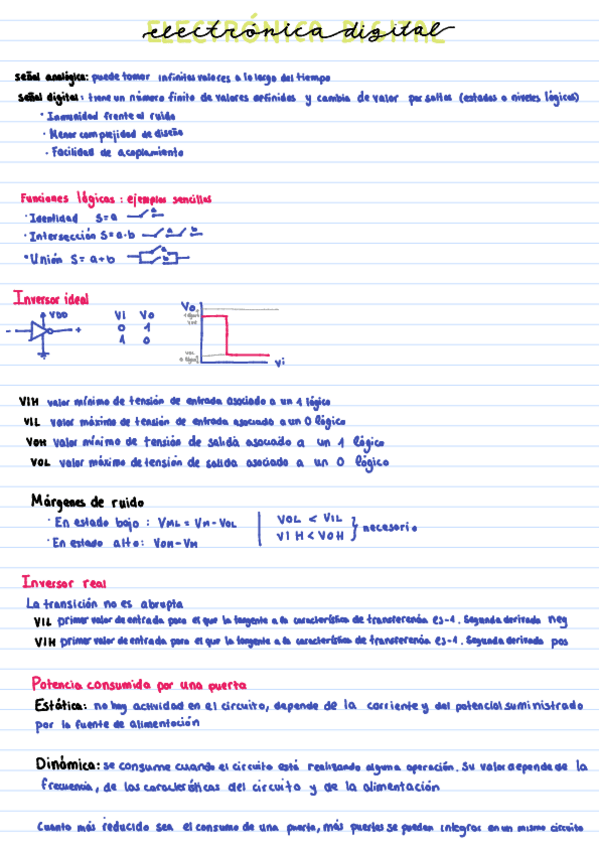 ELECTRÓNICA DIGITAL
electrónica digital
señal analógica: puede tomar infinitos valores a lo largo del tiempo
señal digital: tiene un número finito de valores definidos y cambia de valor por saltos (estados o niveles lógicos)
· Inmunidad frente al ruido
· Menor complejidad de diseño
· Facilidad de acoplamiento
Funciones lógicas: ejemplos sencillos
· Identidad S=a a
· Intersección S=a·b a b
· Unión S=a+b a b
Inversor ideal
VDD
Vi Vo
0 1
1 0
Vo
Vi
VIH valor mínimo de tensión de entrada asociado a un 1 lógico
VIL valor máximo de tensión de entrada asociado a un 0 lógico
VOH valor mínimo de tensión de salida asociado a un 1 lógico
VOL valor máximo de tensión de salida asociado a un 0 lógico
Márgenes de ruido
· En estado bajo: VML = VM-VOL
· En estado alto: VOH-VM
VOL < VIL
VIH < VOH
necesario
Inversor real
La transición no es abrupta
VIL primer valor de entrada para el que la tangente a la característica de transferencia es-1. Segunda derivada neg
VIH primer valor de entrada para el que la tangente a la característica de transferencia es-1. Segunda derivada pos
Potencia consumida por una puerta
Estática: no hay actividad en el circuito, depende de la corriente y del potencial suministrado
por la fuente de alimentación
Dinámica: se consume cuando el circuito está realizando alguna operación. Su valor depende de la
frecuencia, de las características del circuito y de la alimentación
Cuanto más reducido sea el consumo de una puerta, más puertas se pueden integrar en un mismo circuito